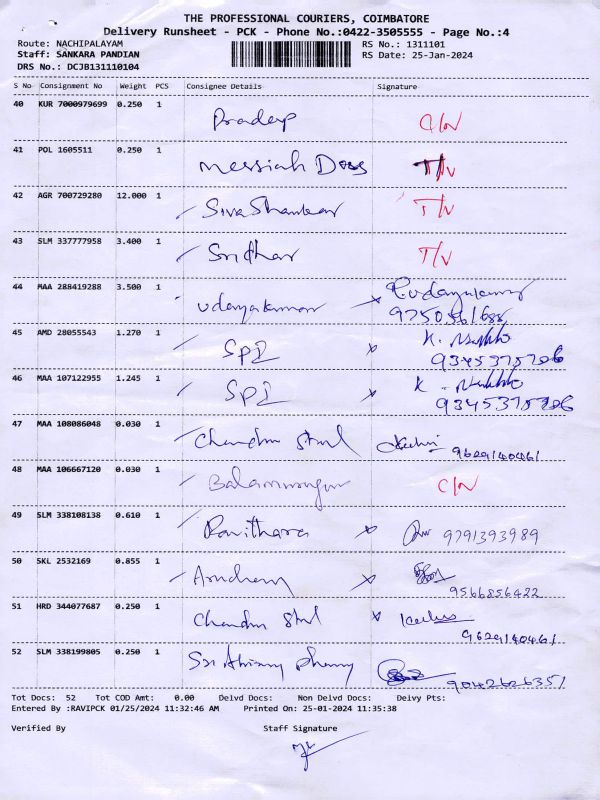 THE PROFESSIONAL COURIERS, COIMBATORE
Delivery Runsheet - PCK - Phone No.:0422-3505555 - Page No.:4
Route: NACHIPALAYAM RS No.: 1311101
Staff: SANKARA PANDIAN RS Date: 25-Jan-2024
DRS No.: DCJB131110104
S No Consignment No Weight PCS Consignee Details Signature
40 KUR 7000979699 0.250 1
Pradeep C/N
41 POL 1605511 0.250 1
Messiah Doss T/V
42 AGR 700729280 12.000 1
Siva Shankar T/V
43 SLM 337777958 3.400 1
Sridhar T/V
44 MAA 288419288 3.500 1
Udayakumar
45 AMD 28055543 1.270 1
SPI
46 MAA 107122955 1.245 1
SPI
47 MAA 108086048 0.030 1
Chandra Steel 9629140461
48 MAA 106667120 0.030 1
Balamurugan C/N
49 SLM 338108138 0.610 1
Pavithara 9791393989
50 SKL 2532169 0.855 1
9566856422
51 HRD 344077687 0.250 1
Chandra Steel
9629140461
52 SLM 338199805 0.250 1
Sri 9042626351
Tot Docs: 52 Tot COD Amt: 0.00 Delvd Docs: Non Delvd Docs: Delvy Pts:
Entered By :RAVIPCK 01/25/2024 11:32:46 AM Printed On: 25-01-2024 11:35:38
Verified By Staff Signature